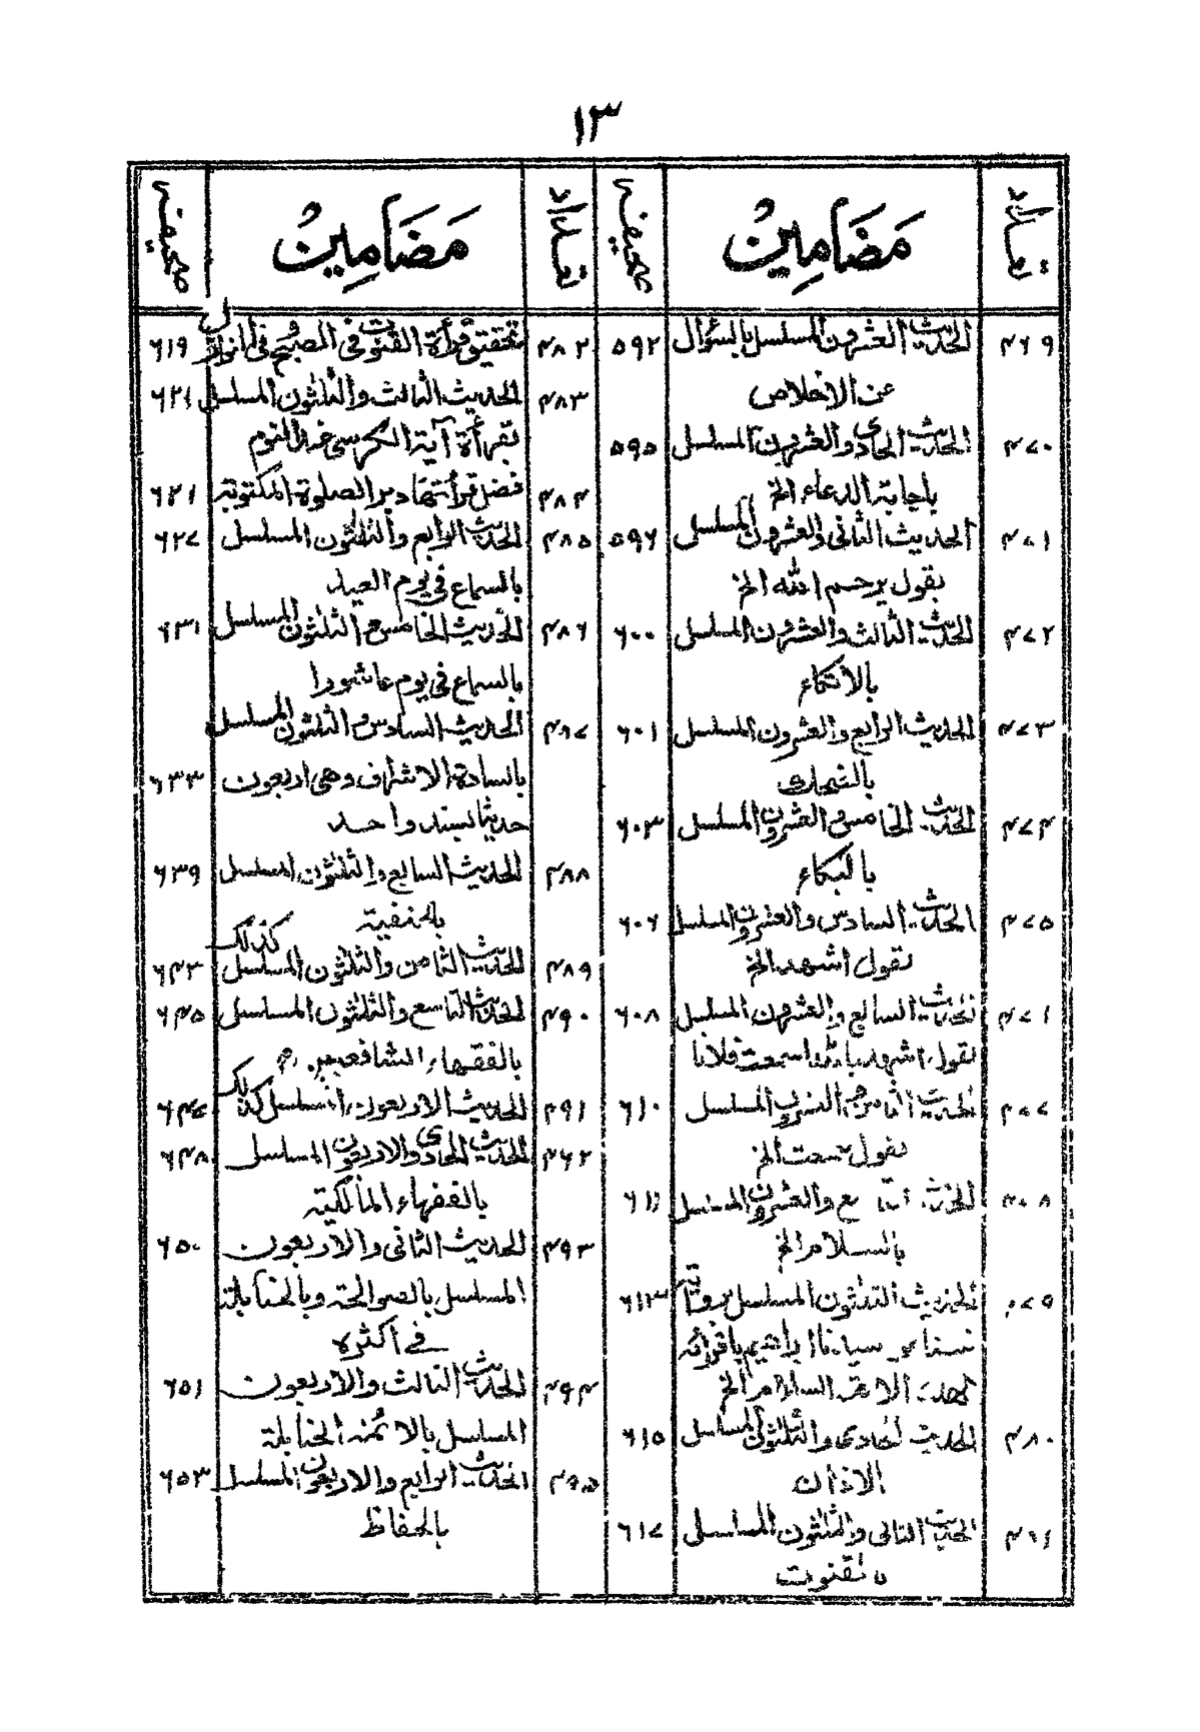 ۱۳
تعداد مضامین صحیفہ
۴۶۹ الحدیث العشرون المسلسل بالسؤال ۵۹۲
عن الاخلاص
۴۷۰ الحدیث الحادی والعشرون المسلسل ۵۹۵
باجابۃ الدعاء الخ
۴۷۱ الحدیث الثانی والعشرون المسلسل ۵۹۶
بقول یرحم اللہ الخ
۴۷۲ الحدیث الثالث والعشرون المسلسل ۶۰۰
بالاتکاء
۴۷۳ الحدیث الرابع والعشرون المسلسل ۶۰۱
بالضحک
۴۷۴ الحدیث الخامس والعشرون المسلسل ۶۰۳
بالبکاء
۴۷۵ الحدیث السادس والعشرون المسلسل ۶۰۶
بقول اشهد الخ
الحدیث السابع والعشرون المسلسل ۶۰۸
بقول اشهد باللہ لسمعت فلانا
الحدیث الثامن والعشرون المسلسل ۶۱۰
بقول سمعت الخ
الحدیث والعشرون المسلسل ۶۱۱
بالسلام الخ
۴۷۹ الحدیث الثلثون المسلسل ۶۱۳
سیدنا ابراهیم
السلام الخ
۴۸۰ الحدیث الحادی والثلثون المسلسل ۶۱۵
الاذان
الحدیث الثانی والثلثون المسلسل ۶۱۷
بالقنوت
تعداد مضامین صحیفہ
۴۸۲ تحقیق قرأۃ القنوت فی الصبح فی النوازل ۶۱۹
۴۸۳ الحدیث الثالث والثلثون المسلسل ۶۲۱
بقرأۃ آیۃ الکرسی عند النوم
۴۸۴ فضل قرأتها دبر الصلوۃ المکتوبۃ ۶۲۱
۴۸۵ الحدیث الرابع والثلثون المسلسل ۶۲۷
بالسماع فی یوم العید
۴۸۶ الحدیث الخامس والثلثون المسلسل ۶۳۱
بالسماع فی یوم عاشورا
۴۸۷ الحدیث السادس والثلثون المسلسل
بالسادۃ الاشراف وهی اربعون ۶۳۳
حدیثا بسند واحد
۴۸۸ الحدیث السابع والثلثون المسلسل ۶۳۹
بالحنفیۃ
۴۸۹ الحدیث الثامن والثلثون المسلسل کذلک ۶۴۳
۴۹۰ الحدیث التاسع والثلثون المسلسل ۶۴۵
بالفقهاء الشافعیین رح
۴۹۱ الحدیث الاربعون المسلسل کذلک ۶۴۷
۴۶۲ الحدیث الحادی والاربعون المسلسل ۶۴۸
بالفقهاء المالکیۃ
۴۹۳ الحدیث الثانی والاربعون ۶۵۰
المسلسل بالصوالحۃ وبالحنابلۃ
فی اکثرہ
۴۹۴ الحدیث الثالث والاربعون ۶۵۱
المسلسل بالائمۃ الحنابلۃ
۴۹۵ الحدیث الرابع والاربعون المسلسل ۶۵۳
بالحفاظ